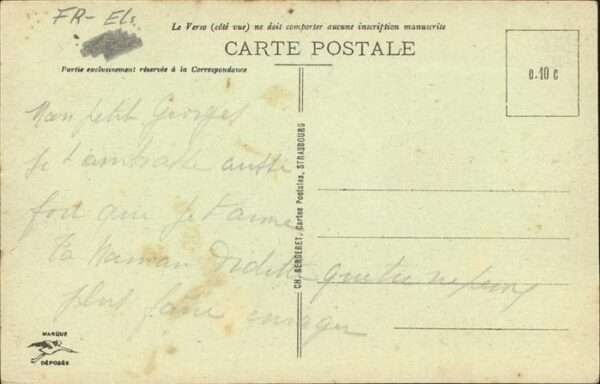 FR- Els
Le Verso (côté vue) ne doit comporter aucune inscription manuscrite
CARTE POSTALE
Partie exclusivement réservée à la Correspondance
0.10 c
Mon petit Georges
Je t'embrasse aussi
fort que je t'aime
ta Maman Odette que tu ne peux
plus faire enrager
CH. BERGERET, Cartes Postales, STRASBOURG
MARQUE
DÉPOSÉE